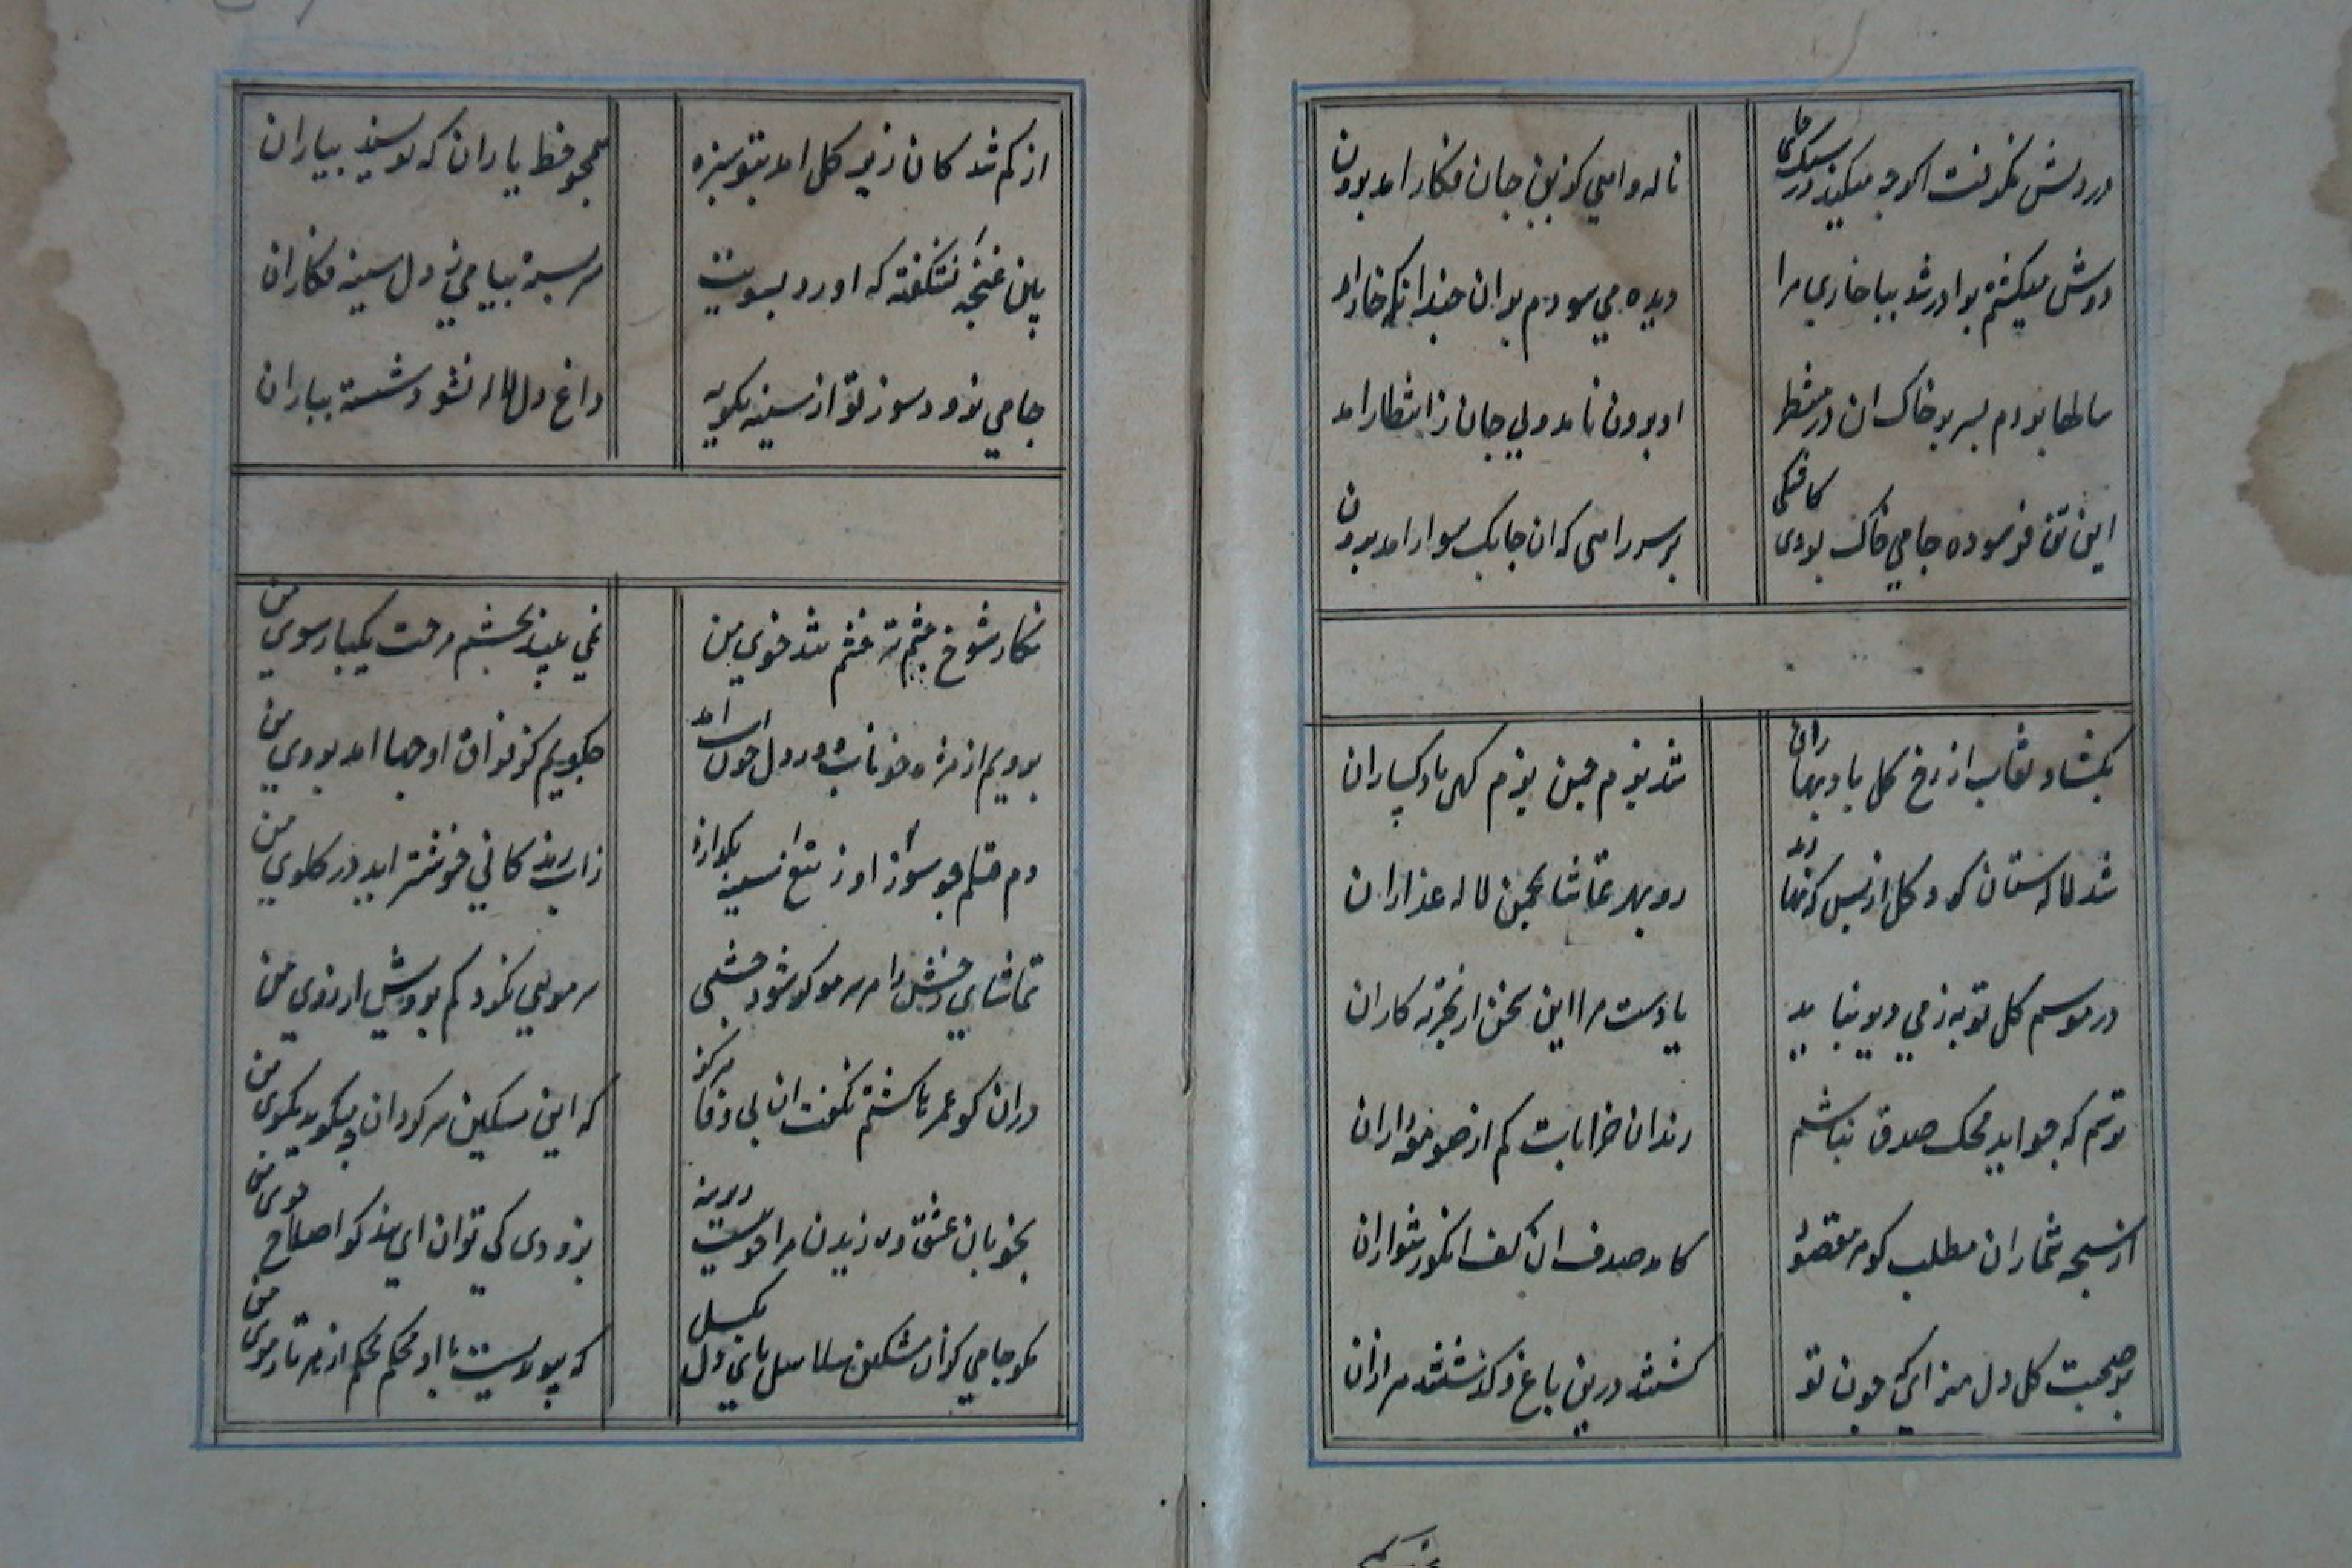 در دلش نگرفت اگرچه میکند در سنگ جای
ناله و اهی کزین جان فکار امد برون
دوش میگشتم بر ان در شد بپا خاری مرا
دیده می سودم بر ان چندانکه خار امد
سالها بودم بسر بر خاک ان در منتظر
او برون نامد ولی جان ز انتظار امد
این تن فرسوده جامی خاک بودی کاشکی
بر سر راهی که ان چابک سوار امد برون
بگشاد نقاب از رخ گل باد بهاران
شد بزم چمن بزم گهی باده گساران
شد لاله ستان گرد گل از بس که نهادند
رو بهر تماشا بچمن لاله عذاران
در موسم گل توبه ز می دیر نپاید
یادست مرا این سخن از تجربه کاران
ترسم که چو اید محک صدق نباشم
رندان خرابات کم از صومعه داران
از سبحه شماران مطلب گوهر مقصود
کامد صدف ان کف انگور فشاران
بر صحبت گل دل منه ای چون تو
گشتند درین باغ و گذشتند هزاران
ازکم شد کان زیر گل امد بتو سبزه
همچو خط یاران که نویسند بیاران
پس غنچه نشکفته که اورد بسویت
سر بسته پیامی ز دل سینه فکاران
جامی نرود سوز تو از سینه بگریه
داغ دل لاله نشود شسته بباران
نگار شوخ چشم تر خشم تند خوی من
نمی بیند بچشم مرحمت یکبار سوی من
برویم از مژه خونابه در دل خون اب امد
چگویم کز فراق او چها امد بروی من
دم قتلم چو سوزد او ز تیغ از سینه بگدازد
ز اب زندگانی خوشتر اید در گلوی من
تماشای رخش را هر سر مو گر شود چشمی
سر مویی نگردد کم برویش ارزوی من
در ان کو عمرها گشتم نگفت ان بی وفا هرگز
که این مسکین سرگردان چه میگردد بکوی من
بخوبان عشق ورزیدن مرا خوییست دیرینه
بزودی کی توان ای پندگو اصلاح خوی من
مگو جامی کز ان مشکین سلاسل پای دل بگسل
که پیوندیست با او محکم محکم از هر تار موی من